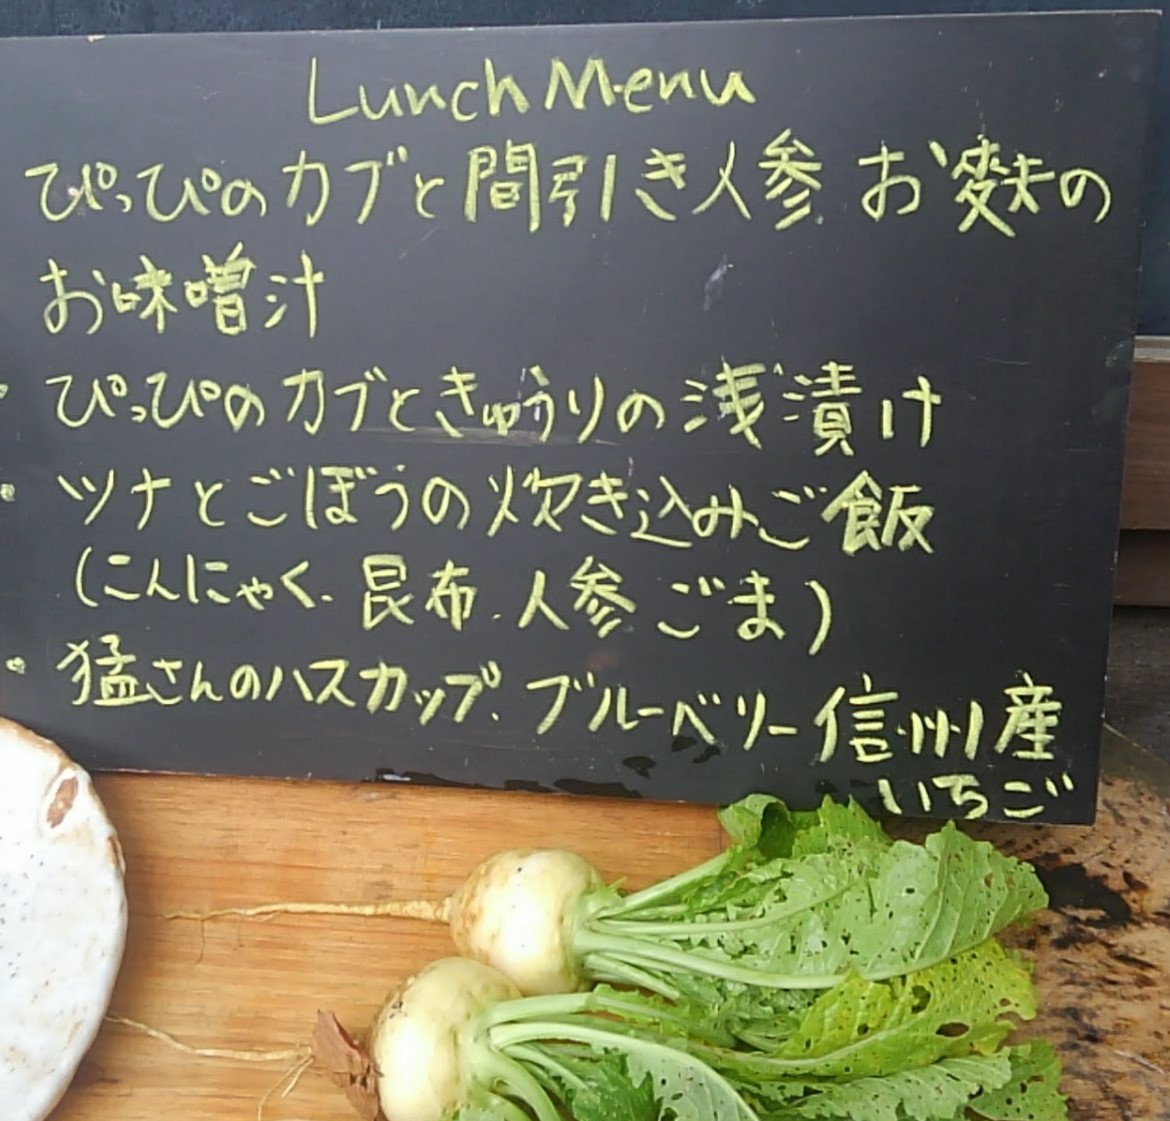 Lunch Menu
ぴっぴのカブと間引き人参 お麩の
お味噌汁
・ぴっぴのカブときゅうりの浅漬け
・ツナとごぼうの炊き込みご飯
(こんにゃく、昆布、人参 ごま)
・猛さんのハスカップ、ブルーベリー信州産
いちご